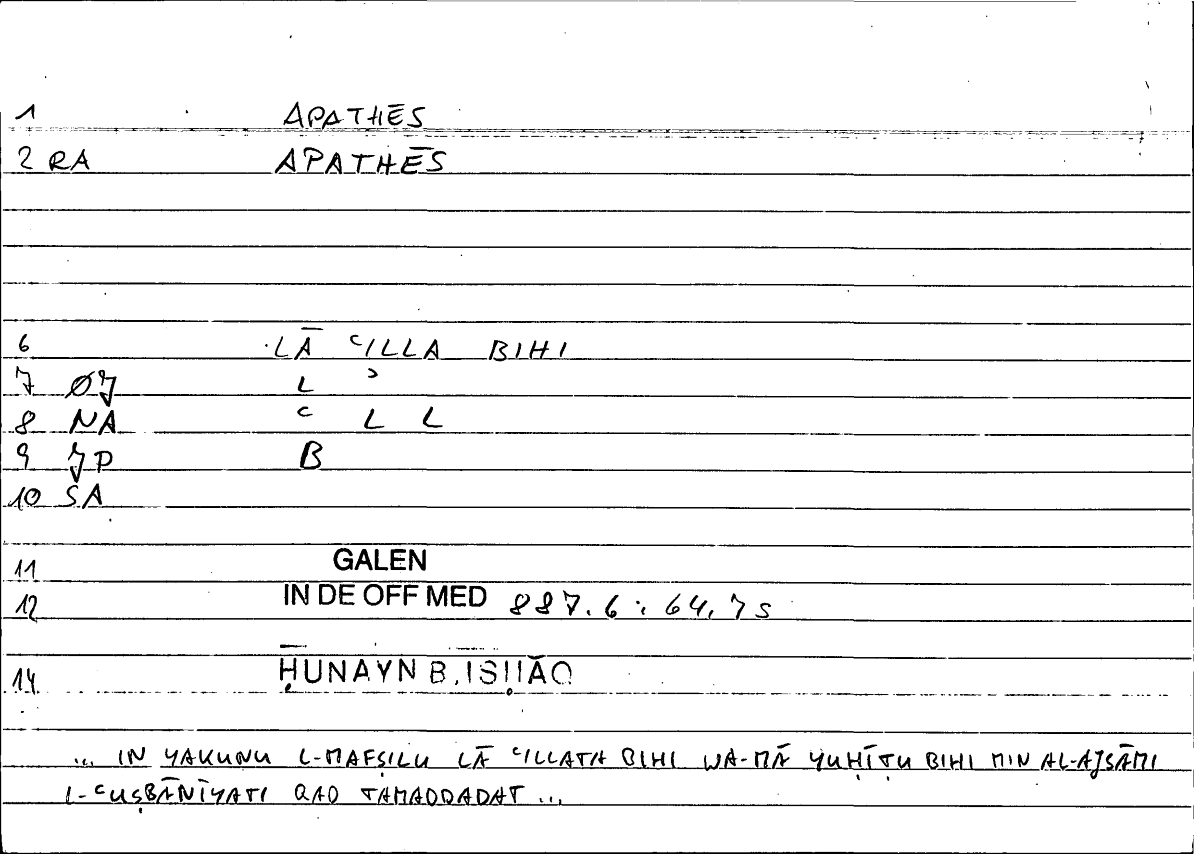 1 APATHĒS
2 RA APATHĒS
6 LĀ ʿILLA BIHI
7 ØJ L ʾ
8 NA ʿ L L
9 JP B
10 SA
11 GALEN
12 IN DE OFF MED 887.6 : 64,7 S
14 ḤUNAYN B. ISḤĀQ
... IN YAKUNU L-MAFṢILU LĀ ʿILLATA BIHI WA-MĀ YUḤĪṬU BIHI MIN AL-AJSĀMI
L-ʿUṢBĀNĪYATI QAD TAMADDADAT ...